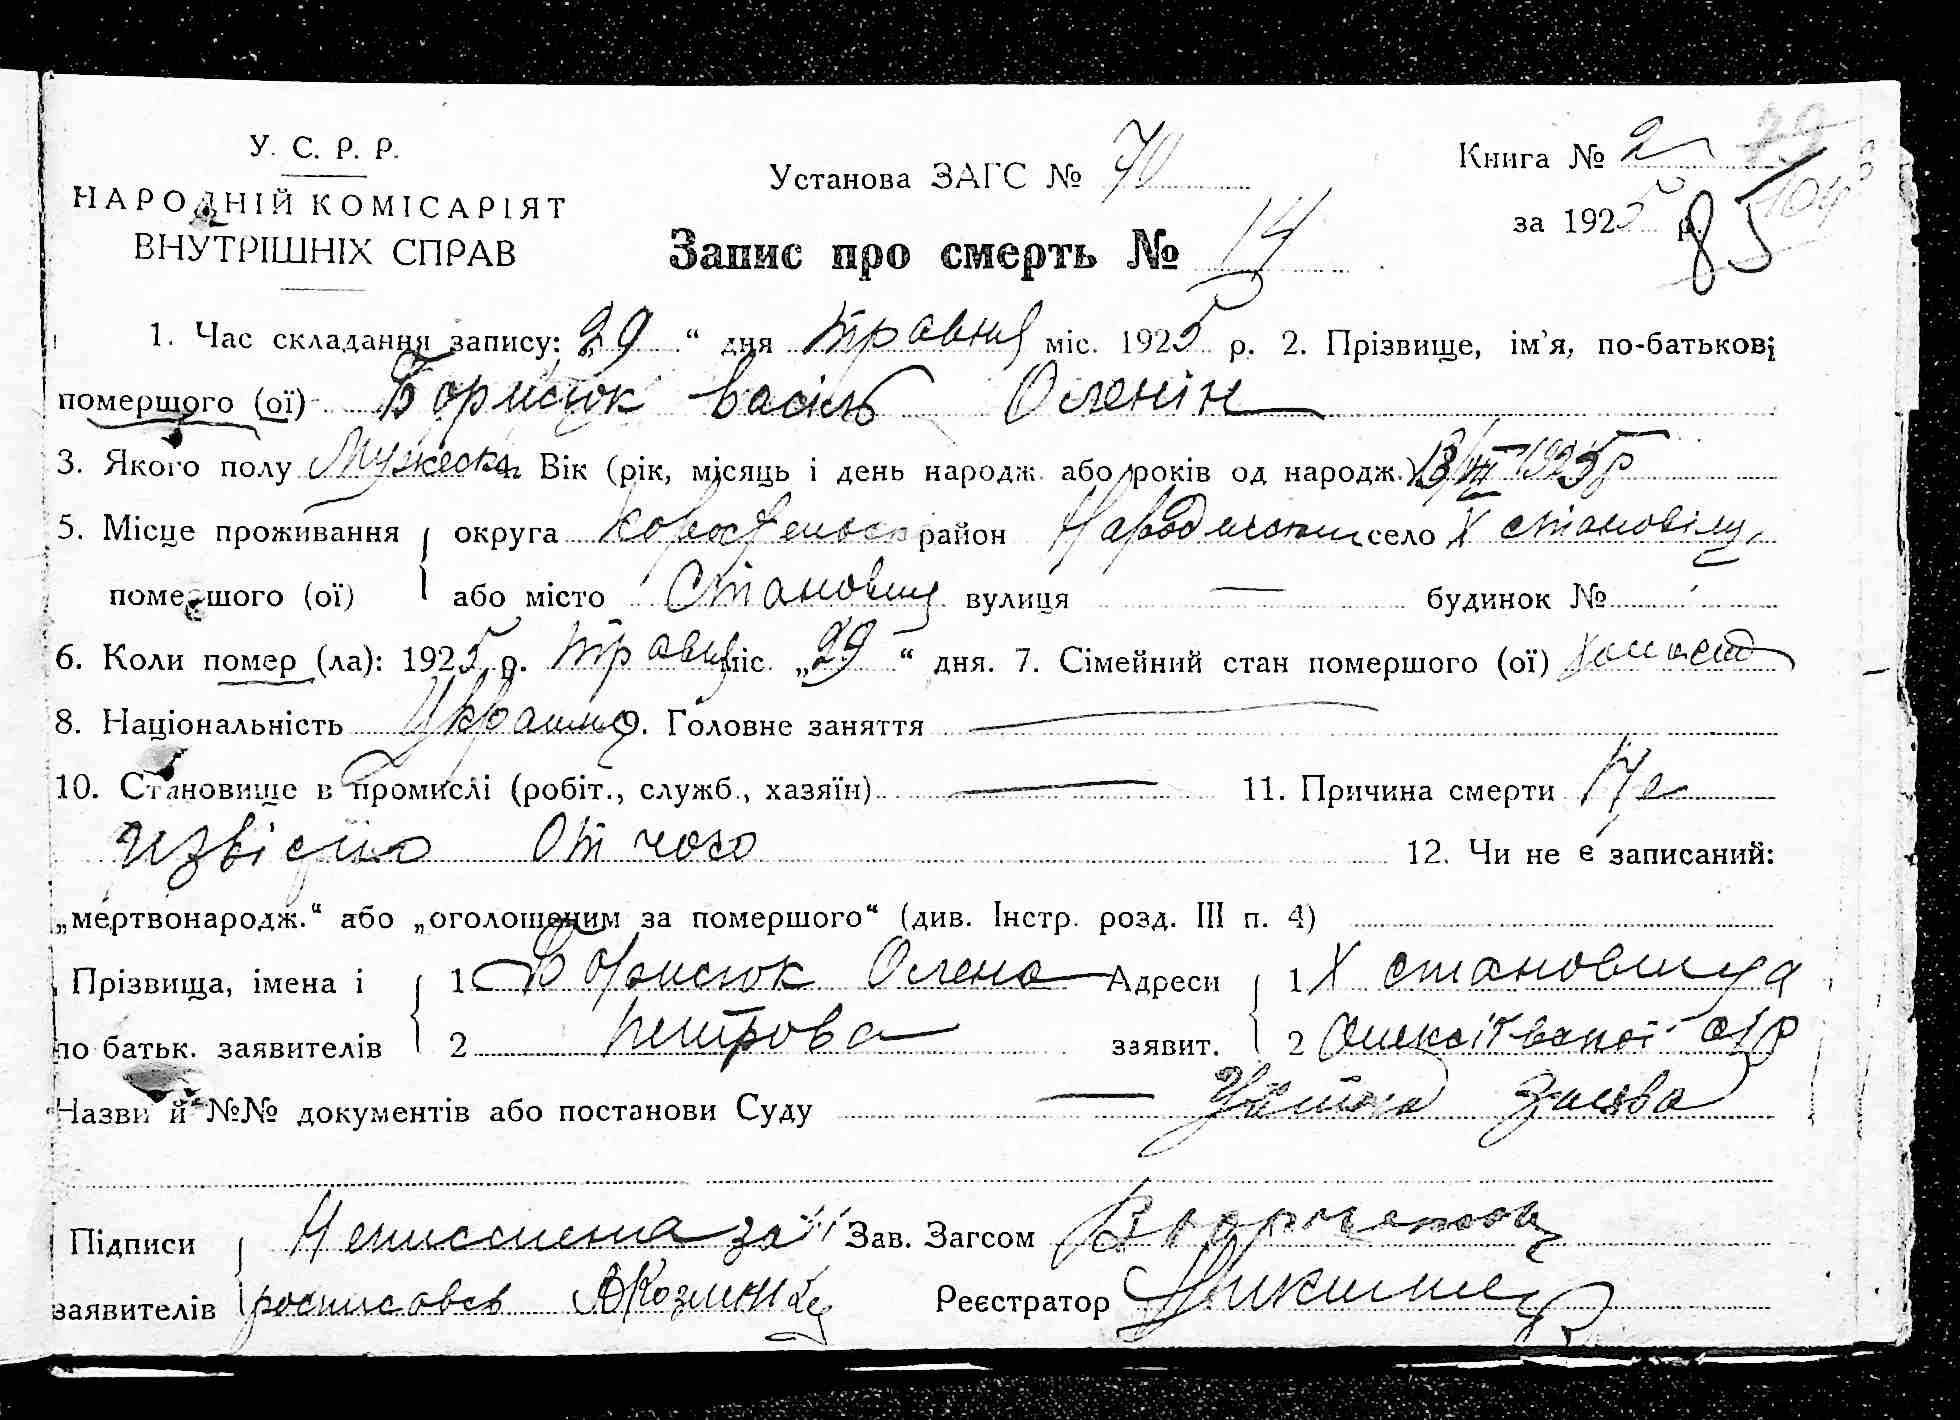 У. С. Р. Р.
НАРОДНІЙ КОМІСАРІЯТ
ВНУТРІШНІХ СПРАВ
Установа ЗАГС № 70
Книга № 2
за 1925 р.
85
Запис про смерть № 14
1. Час складання запису: „29“ дня травня міс. 1925 р. 2. Прізвище, ім’я, по-батькові
помершого (ої) Борисюк Василь Оленін
3. Якого полу Мужеск. 4. Вік (рік, місяць і день народж. або років од народж.) 1925 р
5. Місце проживання округа Коростенськ район Народическ село Х Становищ
помершого (ої) або місто Становищ вулиця — будинок №
6. Коли помер (ла): 1925 р. травня міс. „29“ дня. 7. Сімейний стан помершого (ої) холост
8. Національність Україн 9. Головне заняття —
10. Становище в промислі (робіт., служб., хазяїн) — 11. Причина смерти Не
ізвісно От чого 12. Чи не є записаний:
„мертвонародж.“ або „оголошеним за помершого“ (див. Інстр. розд. III п. 4)
Прізвища, імена і 1 Борисюк Олена Адреси 1 Х Становища
по батьк. заявителів 2 Петрова заявит. 2
Назви й №№ документів або постанови Суду —
Підписи Неписмена за її Зав. Загсом
заявителів росписавсь Реєстратор